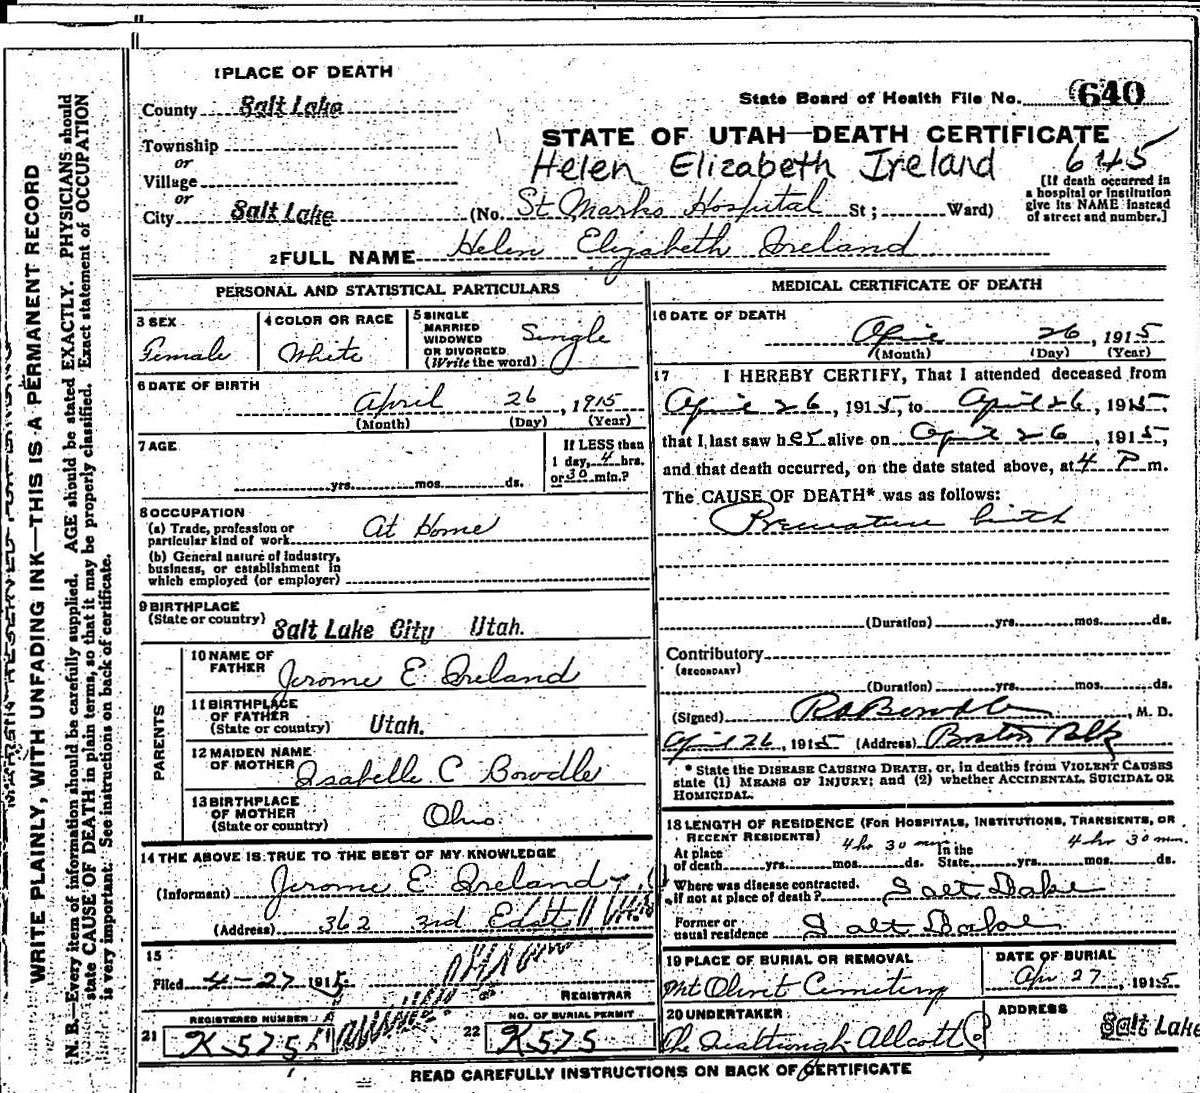 1 PLACE OF DEATH
County Salt Lake
State Board of Health File No. 640
Township
or
Village
or
City Salt Lake
STATE OF UTAH—DEATH CERTIFICATE
Helen Elizabeth Ireland 645
(No. St Marks Hospital St; Ward)
[If death occurred in
a hospital or institution
give its NAME instead
of street and number.]
2 FULL NAME Helen Elizabeth Ireland
PERSONAL AND STATISTICAL PARTICULARS
3 SEX
Female
4 COLOR OR RACE
White
5 SINGLE
MARRIED
WIDOWED
OR DIVORCED
(Write the word)
Single
6 DATE OF BIRTH
April 26, 1915
(Month) (Day) (Year)
7 AGE
yrs. mos. ds.
If LESS than
1 day, 4 hrs.
or 30 min.?
8 OCCUPATION
(a) Trade, profession or
particular kind of work At Home
(b) General nature of industry,
business, or establishment in
which employed (or employer)
9 BIRTHPLACE
(State or country)
Salt Lake City Utah.
PARENTS
10 NAME OF
FATHER Jerome E Ireland
11 BIRTHPLACE
OF FATHER
(State or country) Utah.
12 MAIDEN NAME
OF MOTHER Isabelle C Bowdle
13 BIRTHPLACE
OF MOTHER
(State or country) Ohio
14 THE ABOVE IS TRUE TO THE BEST OF MY KNOWLEDGE
(Informant) Jerome E Ireland
(Address) 362 3rd East
15
Filed 4-27 1915
REGISTRAR
21 REGISTERED NUMBER
K-575
22 NO. OF BURIAL PERMIT
K575
MEDICAL CERTIFICATE OF DEATH
16 DATE OF DEATH
April 26, 1915
(Month) (Day) (Year)
17 I HEREBY CERTIFY, That I attended deceased from
April 26, 1915, to April 26, 1915,
that I last saw her alive on April 26, 1915,
and that death occurred, on the date stated above, at 4 P m.
The CAUSE OF DEATH* was as follows:
Premature birth
(Duration) yrs. mos. ds.
Contributory
(SECONDARY)
(Duration) yrs. mos. ds.
(Signed) Bowdle, M. D.
April 26, 1915 (Address) Boston Blk
* State the DISEASE CAUSING DEATH, or, in deaths from VIOLENT CAUSES
state (1) MEANS OF INJURY; and (2) whether ACCIDENTAL, SUICIDAL OR
HOMICIDAL.
18 LENGTH OF RESIDENCE (FOR HOSPITALS, INSTITUTIONS, TRANSIENTS, OR
RECENT RESIDENTS)
4 hr 30 min 4 hr 30 min.
At place In the
of death yrs. mos. ds. State yrs. mos. ds.
Where was disease contracted.
if not at place of death? Salt Lake
Former or
usual residence Salt Lake
19 PLACE OF BURIAL OR REMOVAL
Mt Olivet Cemetery
DATE OF BURIAL
Apr 27, 1915
20 UNDERTAKER
ADDRESS
Salt Lake
READ CAREFULLY INSTRUCTIONS ON BACK OF CERTIFICATE
WRITE PLAINLY, WITH UNFADING INK—THIS IS A PERMANENT RECORD
N. B.—Every item of information should be carefully supplied. AGE should be stated EXACTLY. PHYSICIANS should
state CAUSE OF DEATH in plain terms, so that it may be properly classified. Exact statement of OCCUPATION
is very important. See instructions on back of certificate.